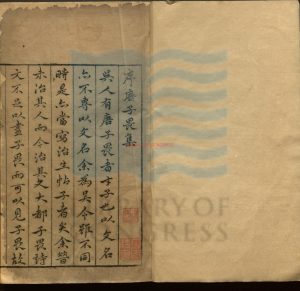 序唐子畏集
吳人有唐子畏者才子也以文名
亦不專以文名余爲吳令雖不同
時是亦當寫治生帖子者矣余昔
未治其人而今治其文大都子畏詩
文不足以盡子畏而可以見子畏故
LIBRARY OF
CONGRESS